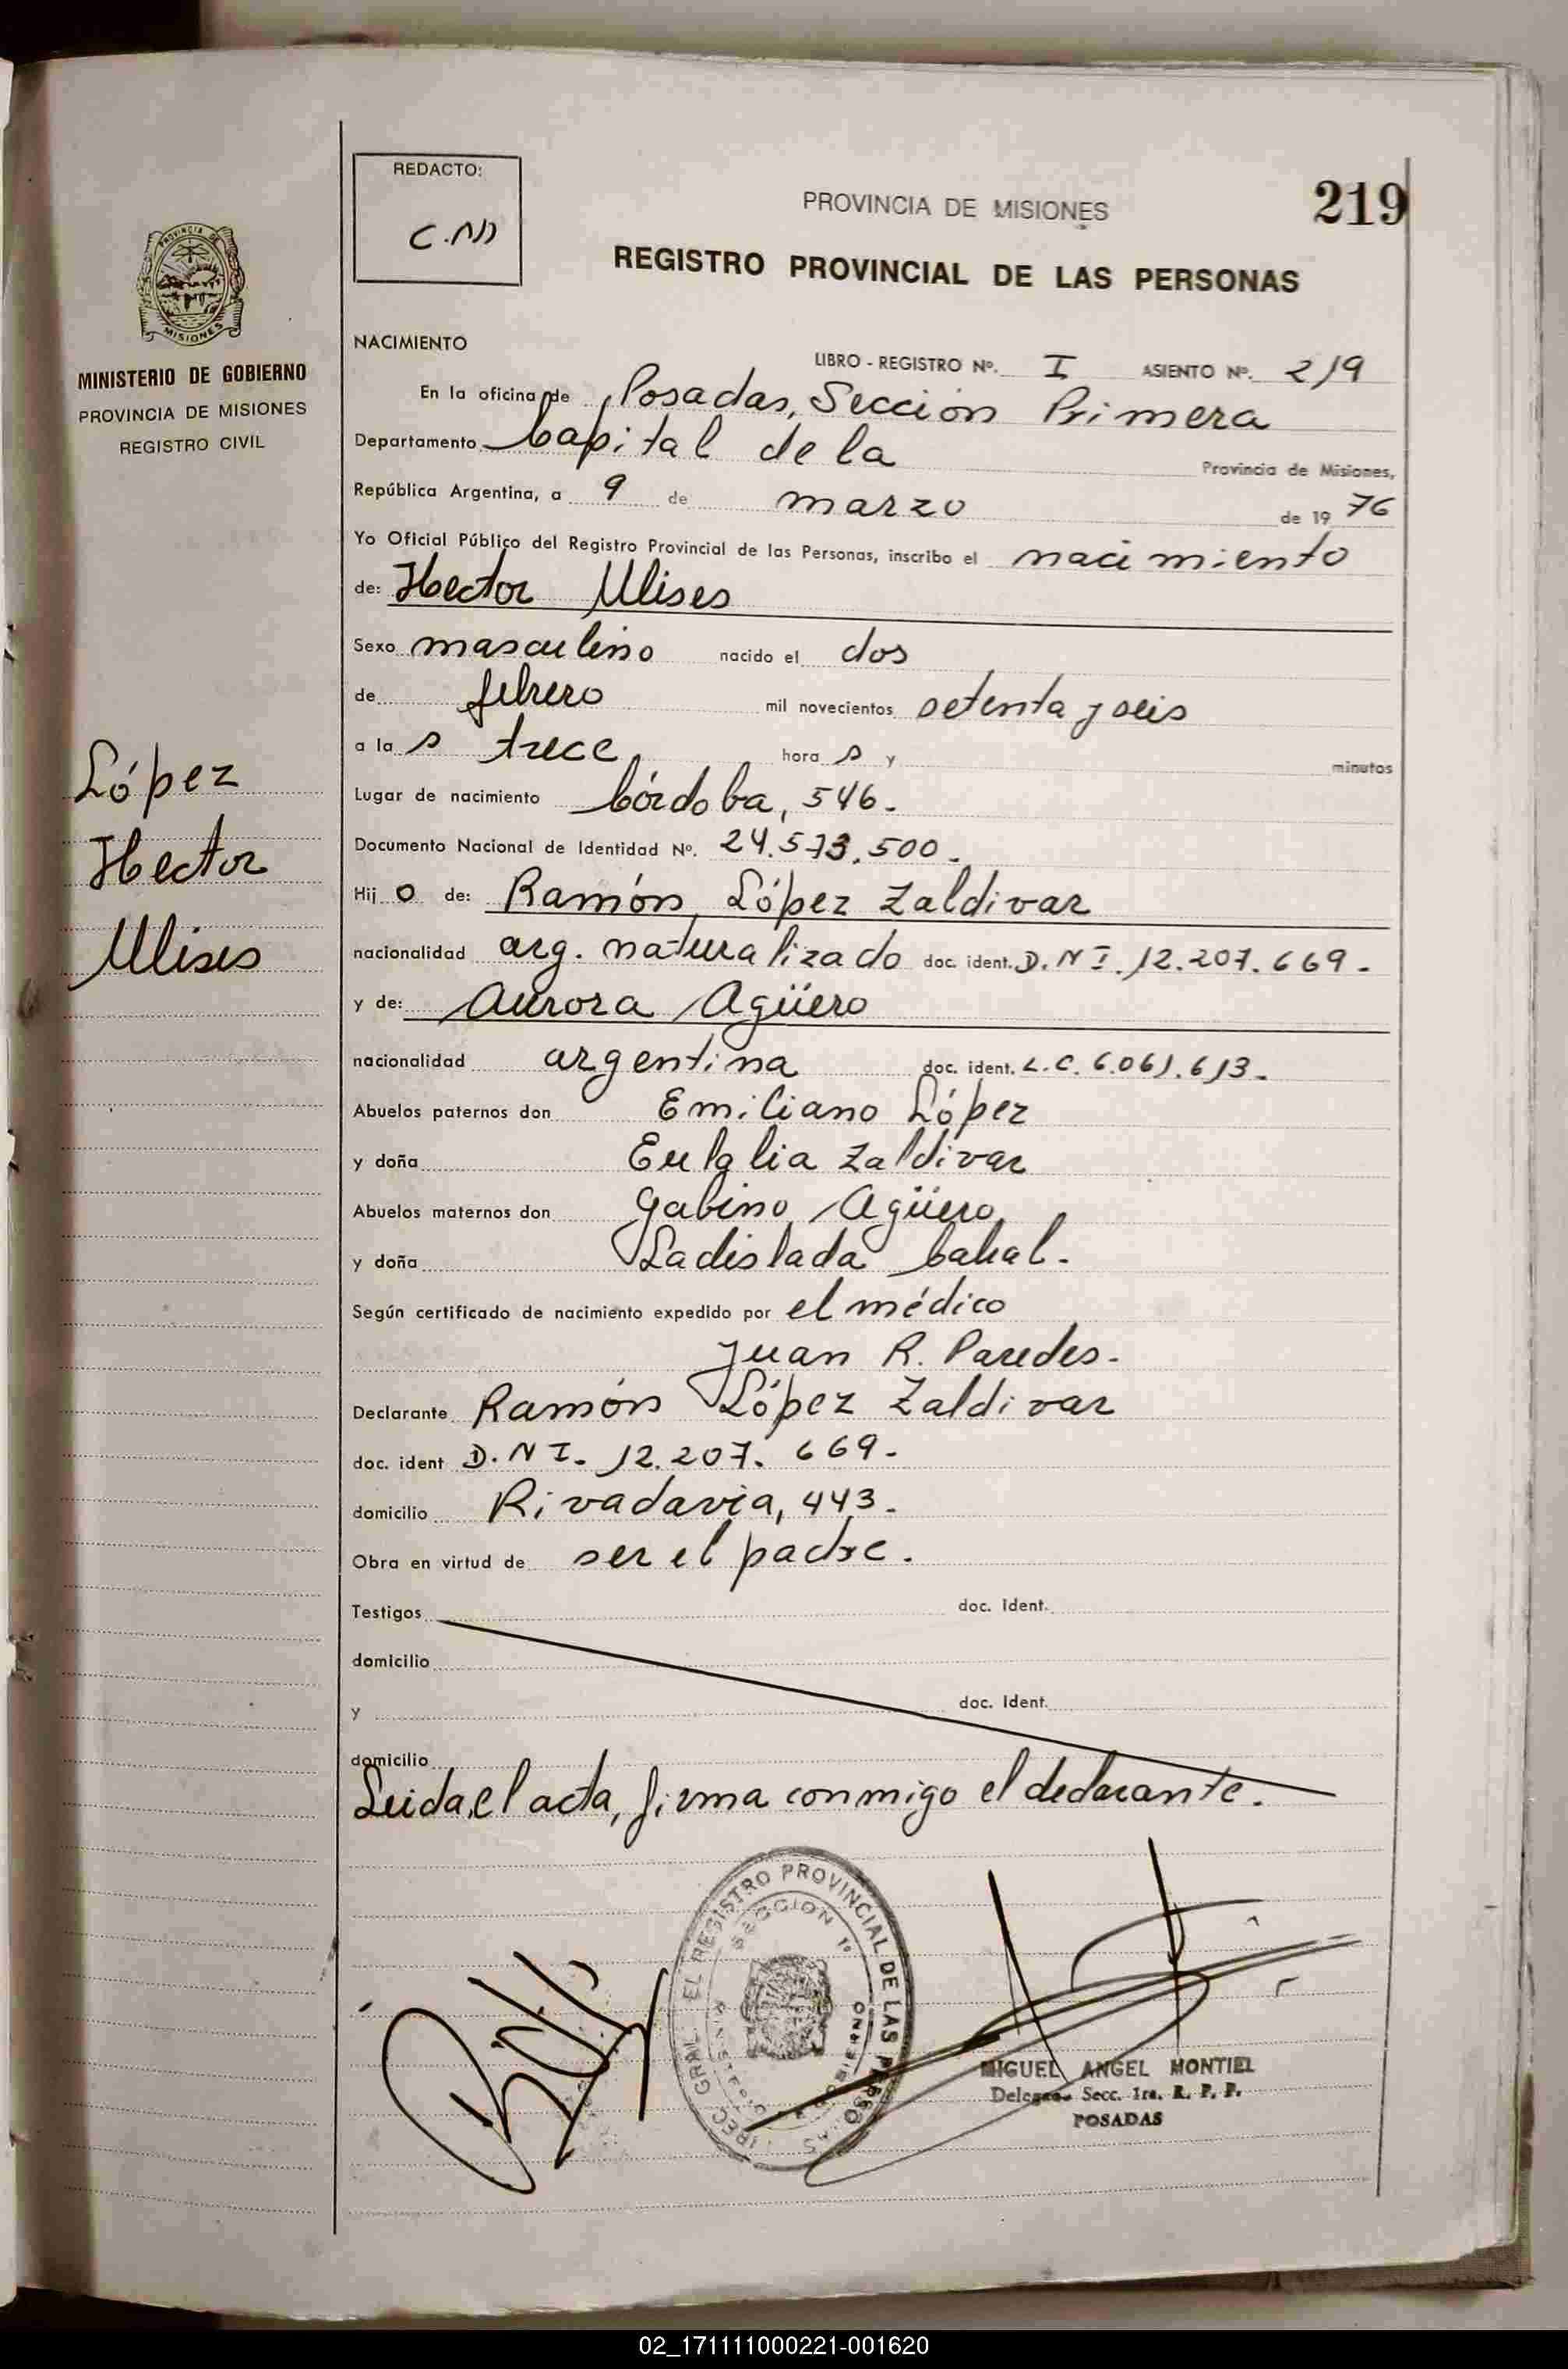 REDACTO:
219
PROVINCIA DE MISIONES
REGISTRO PROVINCIAL DE LAS PERSONAS
PROVINCIA DE
MISIONES
MINISTERIO DE GOBIERNO
PROVINCIA DE MISIONES
REGISTRO CIVIL
López
Hector
Ulises
NACIMIENTO
LIBRO - REGISTRO Nº. I ASIENTO Nº. 219
En la oficina de Posadas, Sección Primera
Departamento Capital de la Provincia de Misiones,
República Argentina, a 9 de marzo de 19 76
Yo Oficial Público del Registro Provincial de las Personas, inscribo el nacimiento
de: Hector Ulises
Sexo masculino nacido el dos
de febrero mil novecientos setenta y seis
a la s trece hora s y minutos
Lugar de nacimiento Córdoba, 546.
Documento Nacional de Identidad Nº. 24.573.500.
Hij o de: Ramón López Zaldivar
nacionalidad arg. naturalizado doc. ident. D.N I. 12.207.669.
y de: Aurora Agüero
nacionalidad argentina doc. ident. L.C. 6.061.613.
Abuelos paternos don Emiliano López
y doña Eulalia Zaldivar
Abuelos maternos don Gabino Agüero
y doña Ladislada
Según certificado de nacimiento expedido por el médico
Juan R. Paredes.
Declarante Ramón López Zaldivar
doc. ident D.N I. 12.207.669.
domicilio Rivadavia, 443.
Obra en virtud de ser el padre.
Testigos doc. Ident.
domicilio
y doc. Ident.
domicilio
Leida el acta, firma conmigo el declarante.
REGISTRO PROVINCIAL DE LAS PERSONAS
SECCION 1º
MIGUEL ANGEL MONTIEL
Delegado Secc. 1ra. R. P. P.
POSADAS
02_171111000221-001620